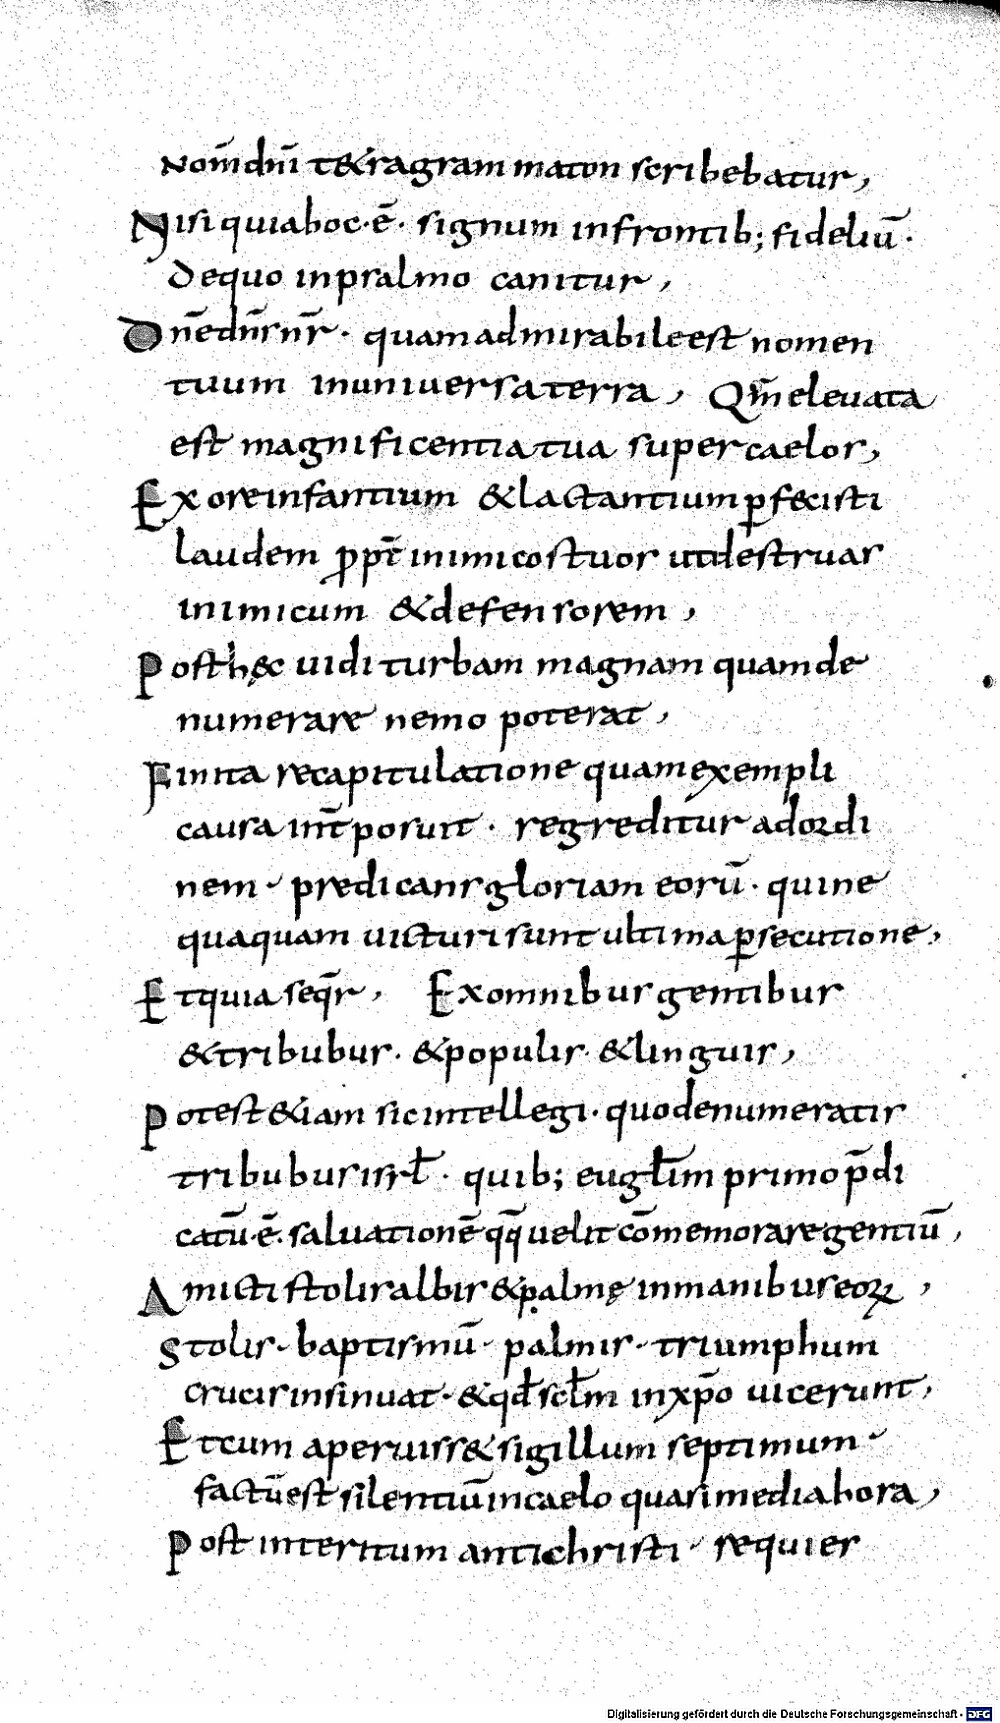 Nom̅ dn̅i t&ragrammaton scribebatur,
Nisi quia hoc · ē · signum in frontib; fideliū ·
de quo in psalmo canitur,
Dn̅e dn̅s nr̅ · quam admirabile est nomen
tuum in universa terra, Qm̅ elevata
est magnificentia tua super caelos,
Ex ore infantium & lactantium ꝑfecisti
laudem ꝓpt̄ inimicos tuos ut destruas
inimicum & defensorem,
Post hęc uidi turbam magnam quam de
numerare nemo poterat,
Finita recapitulatione quam exempli
causa int̄posuit · regreditur ad ordi
nem · predicans gloriam eorū · qui ne
quaquam uicturi sunt ultima ꝑsecutione,
Et quia seqr̄, Ex omnibus gentibus
& tribubus · & populis · & linguis,
Potest &iam sic intellegi · quod enumeratis
tribubus isrł · quib; eugłim primo p̄di
catū · ē · saluationē qq̄ uelit cōmemorare gentiū,
Amicti stolis albis & palmę in manibus eoꝝ,
Stolis · baptismū · palmis · triumphum
crucis insinuat · & qd̄ scłm in xp̄o uicerunt,
Et cum aperuiss& sigillum septimum ·
factū est silentiū in caelo quasi media hora,
Post interitum antichristi · requies
Digitalisierung gefördert durch die Deutsche Forschungsgemeinschaft - DFG